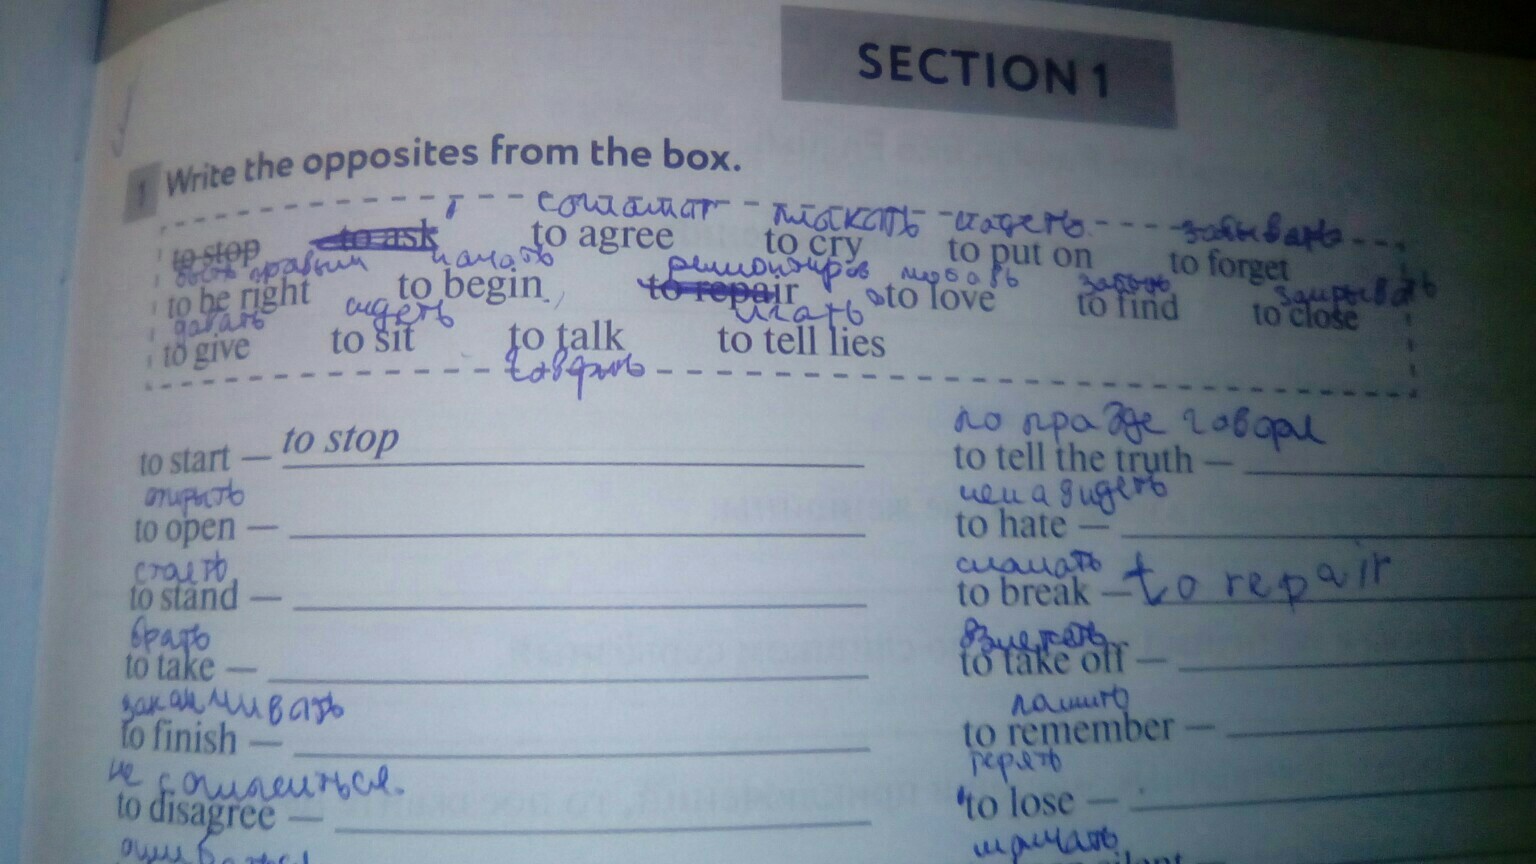 SECTION 1
1 Write the opposites from the box.
плакать надеть забывать
to stop to ask to agree to cry to put on to forget
быть правым начать
to be right to begin to repair to love to find to close
давать сидеть
to give to sit to talk to tell lies
по правде говоря
to start — to stop to tell the truth —
открыть ненавидеть
to open — to hate —
стоять сломать
to stand — to break — to repair
брать взлетать
to take — to take off —
заканчивать помнить
to finish — to remember —
не терять
to disagree — to lose —
молчать